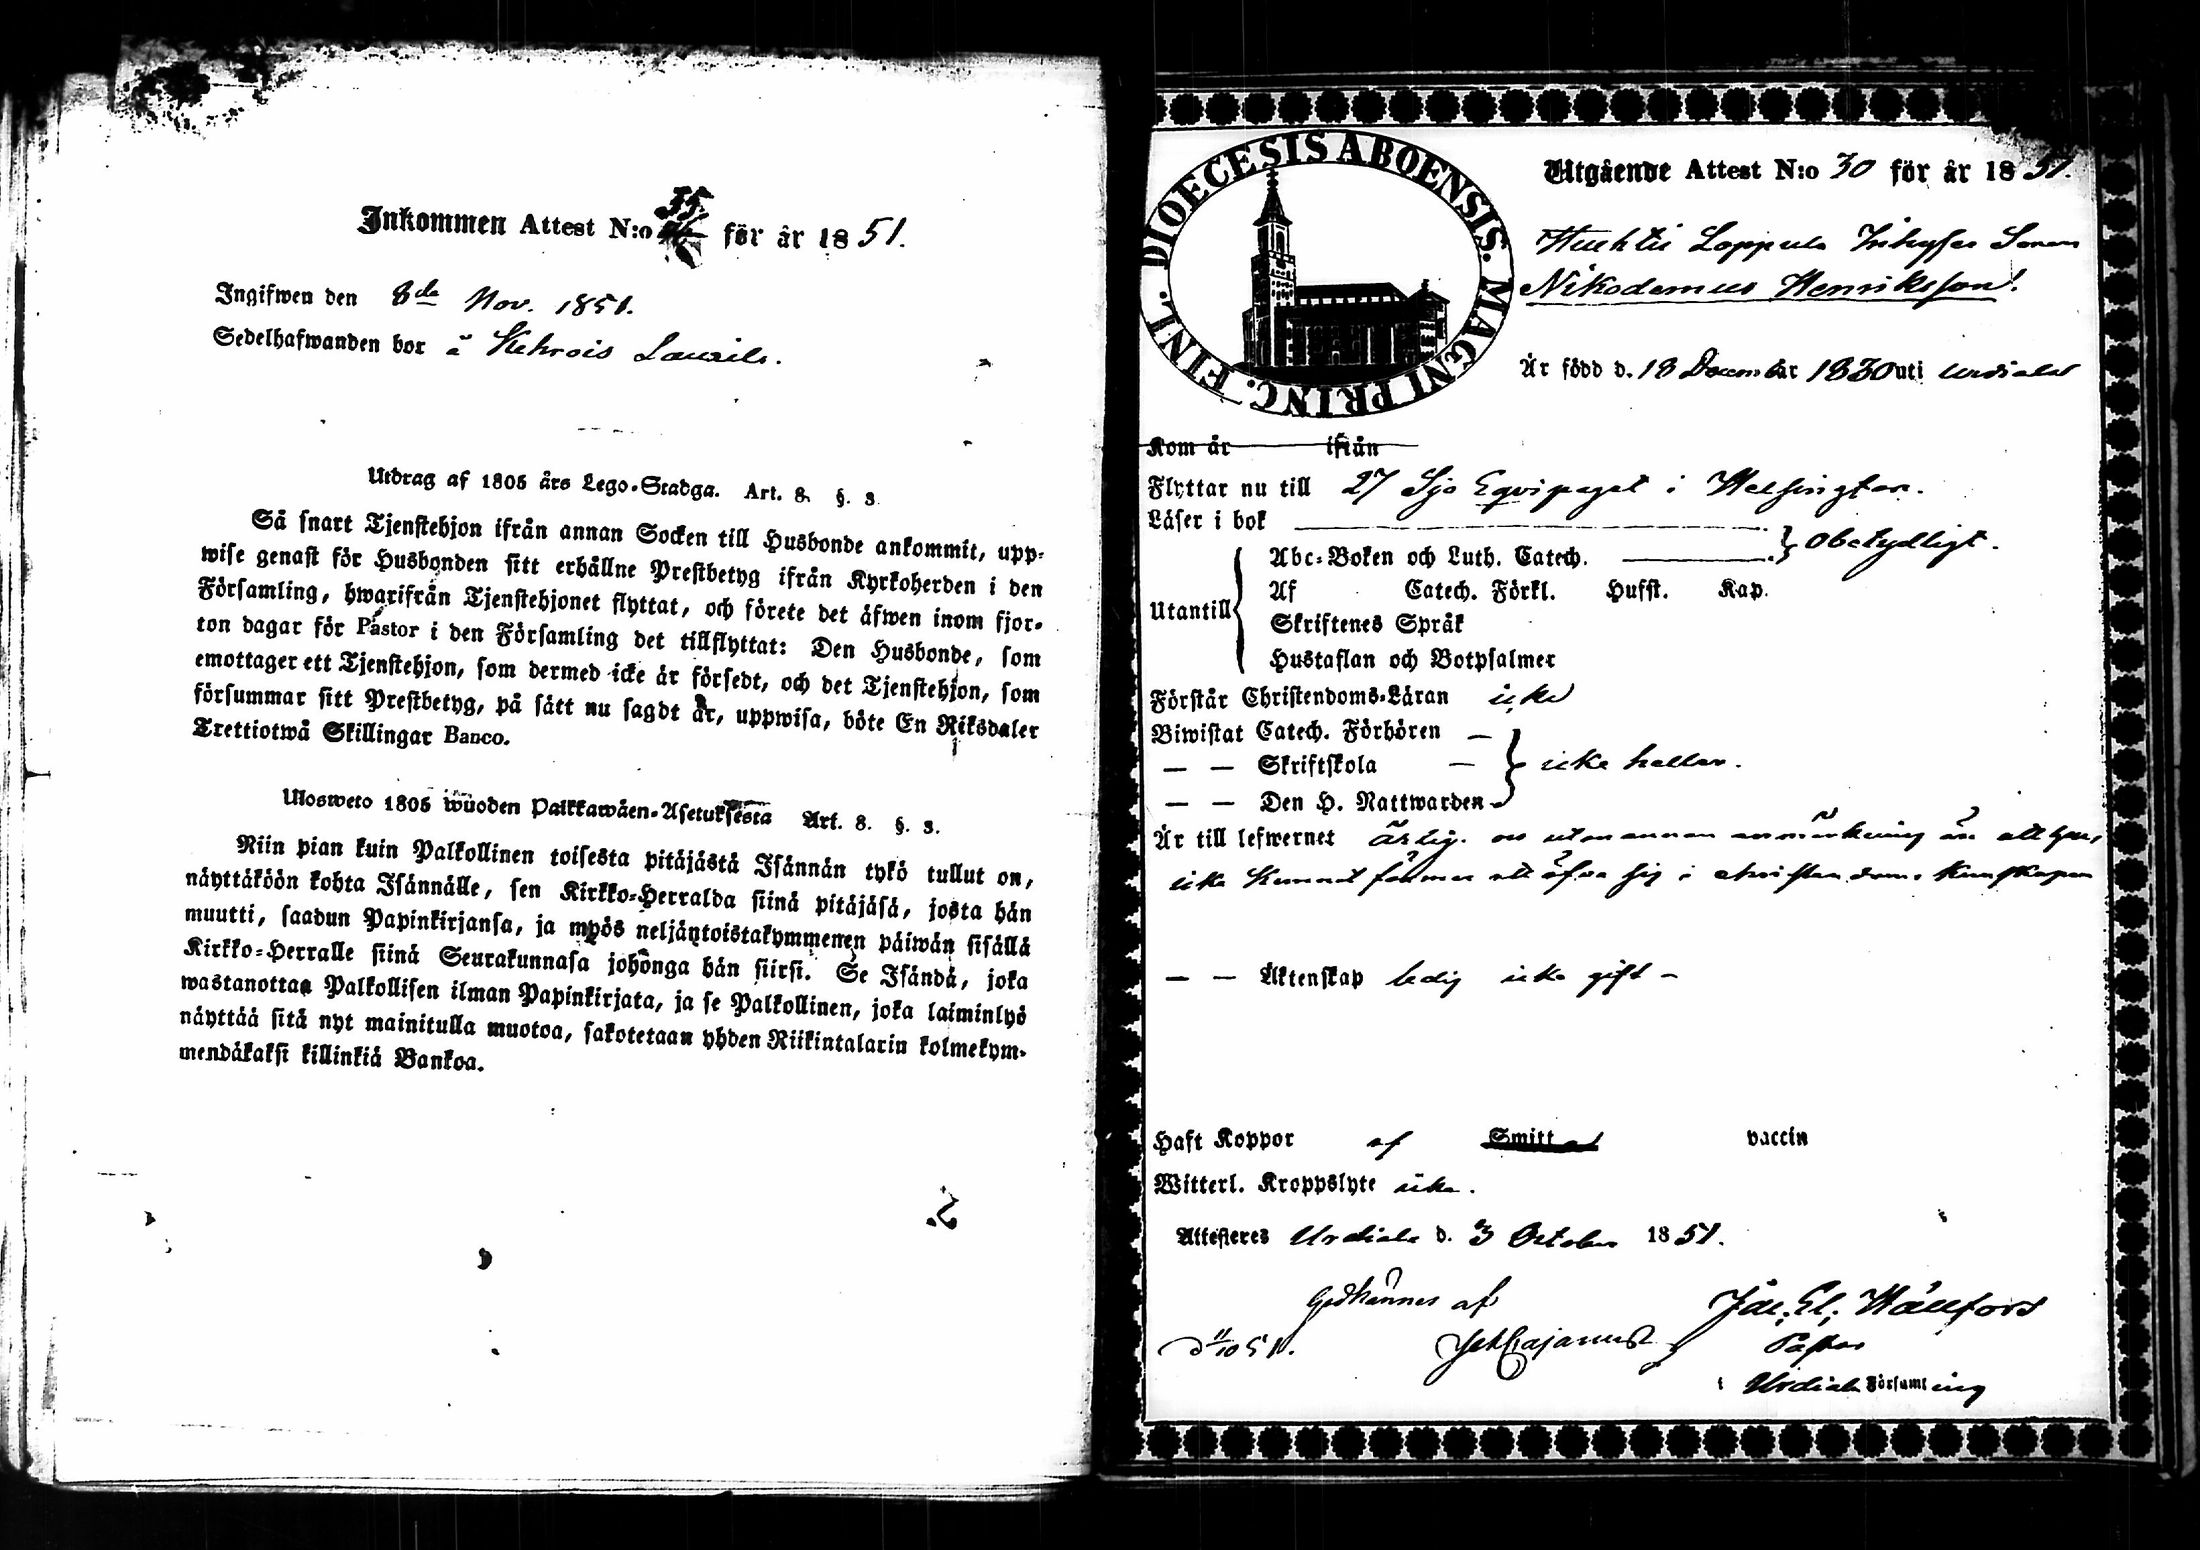 Inkommen Attest N:o 35 för år 1851.
Ingifwen den 8de Nov. 1851.
Sedelhafwanden bor å Kehrois Laurila.
Utdrag af 1805 års Lego-Stadga. Art. 8. §. 3.
Så snart Tjenstehjon ifrån annan Socken till Husbonde ankommit, upp-
wise genast för Husbonden sitt erhållne Prestbetyg ifrån Kyrkoherden i den
Församling, hwarifrån Tjenstehjonet flyttat, och förete det äfwen inom fjor-
ton dagar för Pastor i den Församling det tillflyttat: Den Husbonde, som
emottager ett Tjenstehjon, som dermed icke är försedt, och det Tjenstehjon, som
försummar sitt Prestbetyg, på sätt nu sagdt är, uppwisa, böte En Riksdaler
Trettiotwå Skillingar Banco.
Ulosweto 1805 wuoden Palkkawäen-Asetuksesta Art. 8. §. 3.
Niin pian kuin Palkollinen toisesta pitäjästä Isännän tykö tullut on,
näyttäköön kohta Isännälle, sen Kirkko-Herralda siinä pitäjäsä, josta hän
muutti, saadun Papinkirjansa, ja myös neljäntoistakymmenen päiwän sisällä
Kirkko-Herralle siinä Seurakunnasa johonga hän siirsi. Se Isändä, joka
wastanottaa Palkollisen ilman Papinkirjata, ja se Palkollinen, joka laiminlyö
näyttää sitä nyt mainitulla muotoa, sakotetaan yhden Riikintalarin kolmekym-
mendäkaksi killinkiä Bankoa.
DIOECESIS ABOENSIS. MAGNI PRINC. FINL.
Utgående Attest N:o 30 för år 1851.
Huhtis Loppula Inhyses Sonen
Nikodemus Henriksson.
Är född d. 18 December 1830 uti Urdiala
Kom år ifrån
Flyttar nu till 27 Sjö Equipaget i Helsingfors.
Läser i bok
Abc-Boken och Luth. Catech. } obetydligt.
Utantill { Af Catech. Förkl. Hufst. Kap.
Skriftenes Språk
Hustaflan och Botpsalmer
Förstår Christendoms-Läran icke
Biwistat Catech. Förhören —
— — Skriftskola — } icke heller.
— — Den H. Nattwarden
Är till lefwernet ärlig. utan annan anmärkning än att han
icke kunnat förmås att öfva sig i christendoms kunskapen
— — Äktenskap ledig icke gift —
Haft Koppor af Smitt vaccin
Witterl. Kroppslyte icke.
Attesteres Urdiala d. 3 October 1851.
Godkännes af
Jac. El. Wallfors
d 11/10 51. Cajanus
Pastor
i Urdiala Församling